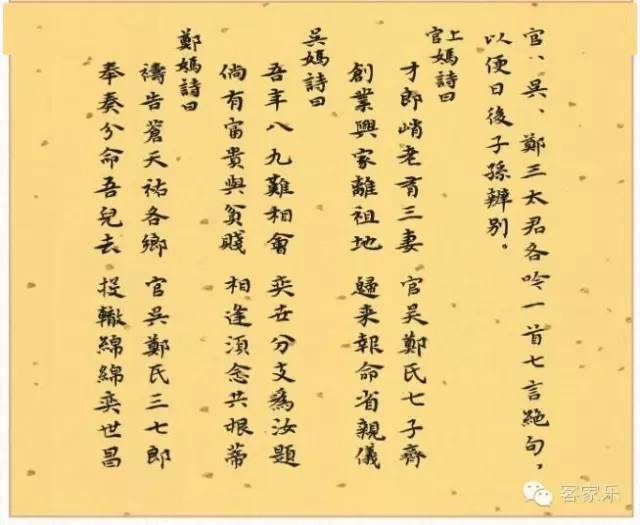 官、吳、鄭三太君各吟一首七言絶句，
以便日後子孫辨别。
上官媽詩曰
才郎峭老育三妻 官吴鄭氏七子齊
創業興家離祖地 歸来報命省親儀
吴媽詩曰
吾年八九難相會 奕世分支爲汝題
倘有富貴與貧賤 相逢須念共根蒂
鄭媽詩曰
禱告蒼天祐各鄉 官吴鄭氏三七郎
奉奏分命吾兒去 投轍綿綿奕世昌
客家乐